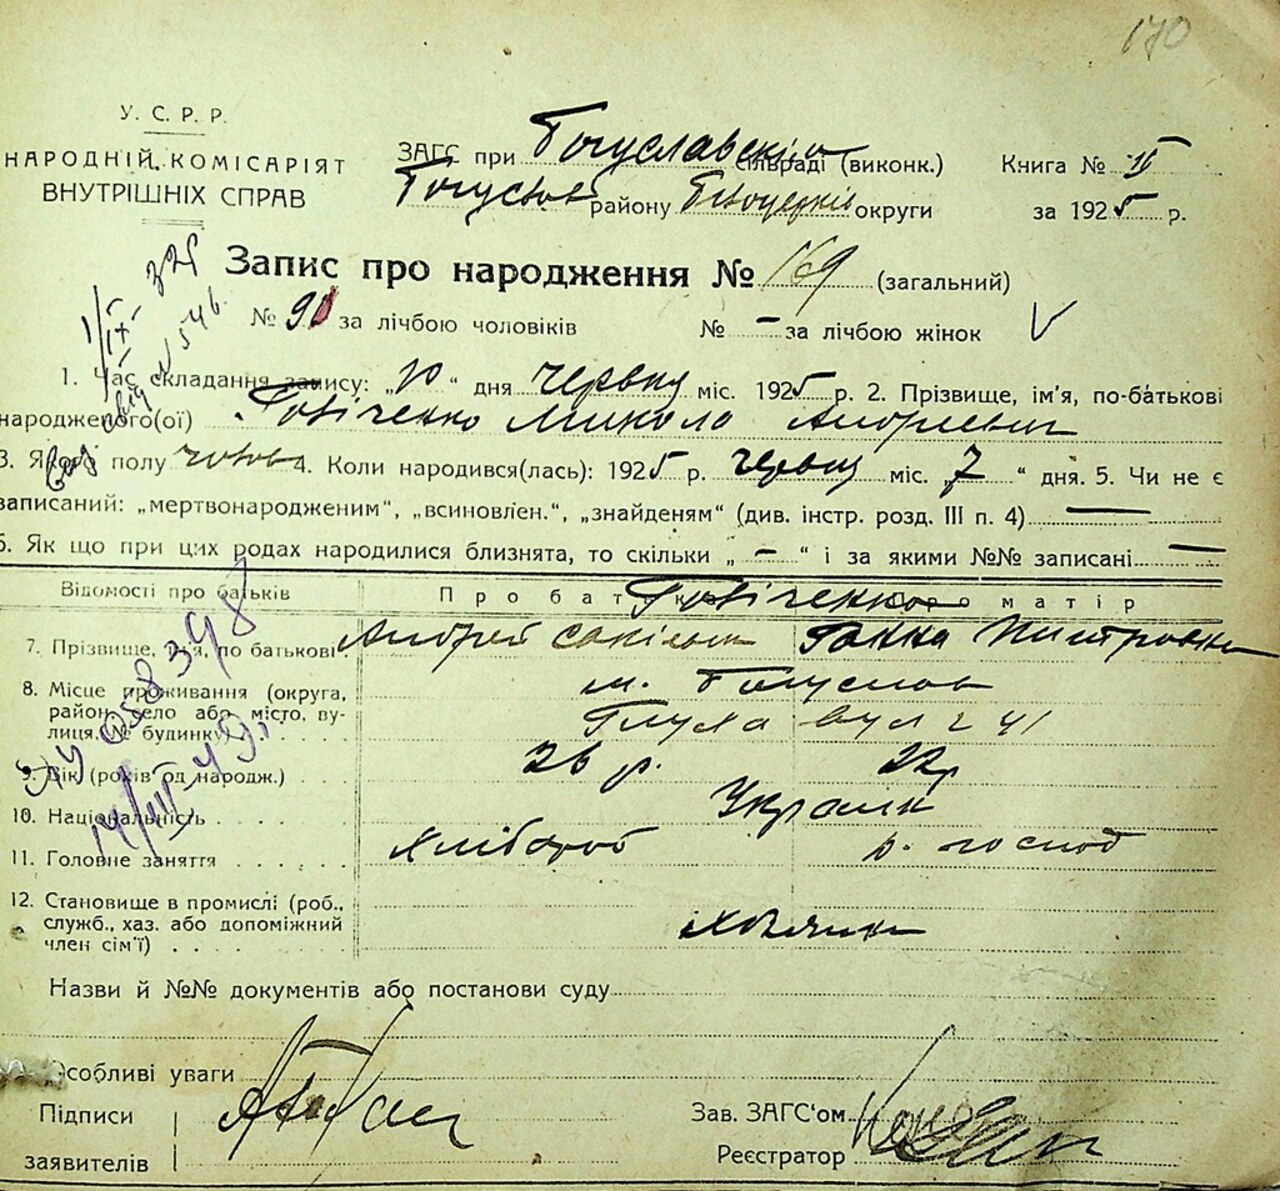 170
У. С. Р. Р.
НАРОДНІЙ КОМІСАРІЯТ
ВНУТРІШНІХ СПРАВ
ЗАГС при Богуславскій сільраді (виконк.) Книга № II
Богуслав району Білоцерків округи за 1925 р.
Запис про народження № 169 (загальний)
№ 90 за лічбою чоловіків № – за лічбою жінок
1. Час складання запису: „10“ дня червня міс. 1925 р. 2. Прізвище, ім'я, по-батькові
народженого(ої) Микола Андреевич
3. Якого полу чолов 4. Коли народився(лась): 1925 р. червня міс. „7“ дня. 5. Чи не є
записаний: „мертвонародженим“, „всиновлен.“, „знайденям“ (див. інстр. розд. III п. 4) —
6. Як що при цих родах народилися близнята, то скільки „–“ і за якими №№ записані —
Відомості про батьків Про батька Про матір
7. Прізвище, ім'я, по батькові Андрей Ганна
8. Місце проживання (округа, м. Богуслав
район, село або місто, ву-
лиця, № будинку) Глуха вул 41
9. Вік (років од народж.) 26 р. 22 р
10. Національність Україн
11. Головне заняття Хлібороб д. господ
12. Становище в промислі (роб.,
служб., хаз. або допоміжний
член сім'ї)
Назви й №№ документів або постанови суду
Особливі уваги
Підписи
заявителів
Зав. ЗАГС'ом
Реєстратор